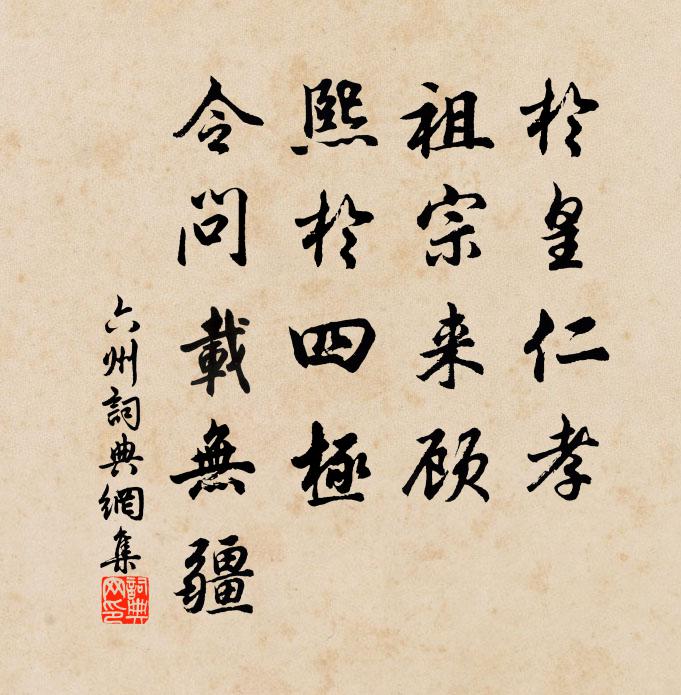 於皇仁孝
祖宗来顾
熙於四極
令問載無疆
六州詞典網集
詞典網印